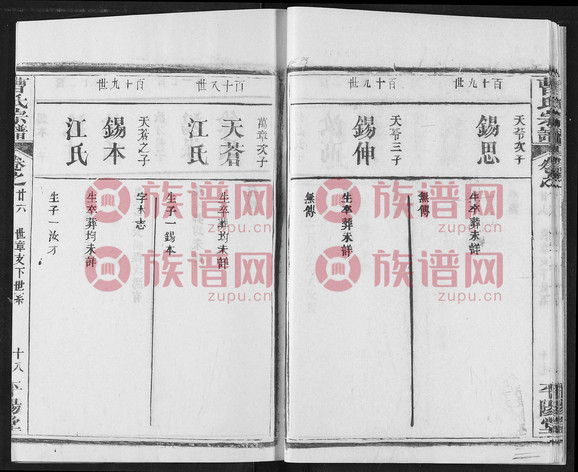 曹氏宗譜
平陽堂
百十九世
天苓次子
錫思
生卒葬未詳
無傳
百十九世
天苓三子
錫伸
生卒葬未詳
無傳
百十八世
萬章次子
天蒼
江氏
生卒葬均未詳
生子一錫本
百十九世
天蒼之子
錫本
江氏
字木志
生卒葬均未詳
生子一汝才
曹氏宗譜
卷之廿六
世章支下世系
十八
平陽堂
族谱网
zupu.cn
族谱网
zupu.cn
族谱网
zupu.cn
族谱网
zupu.cn